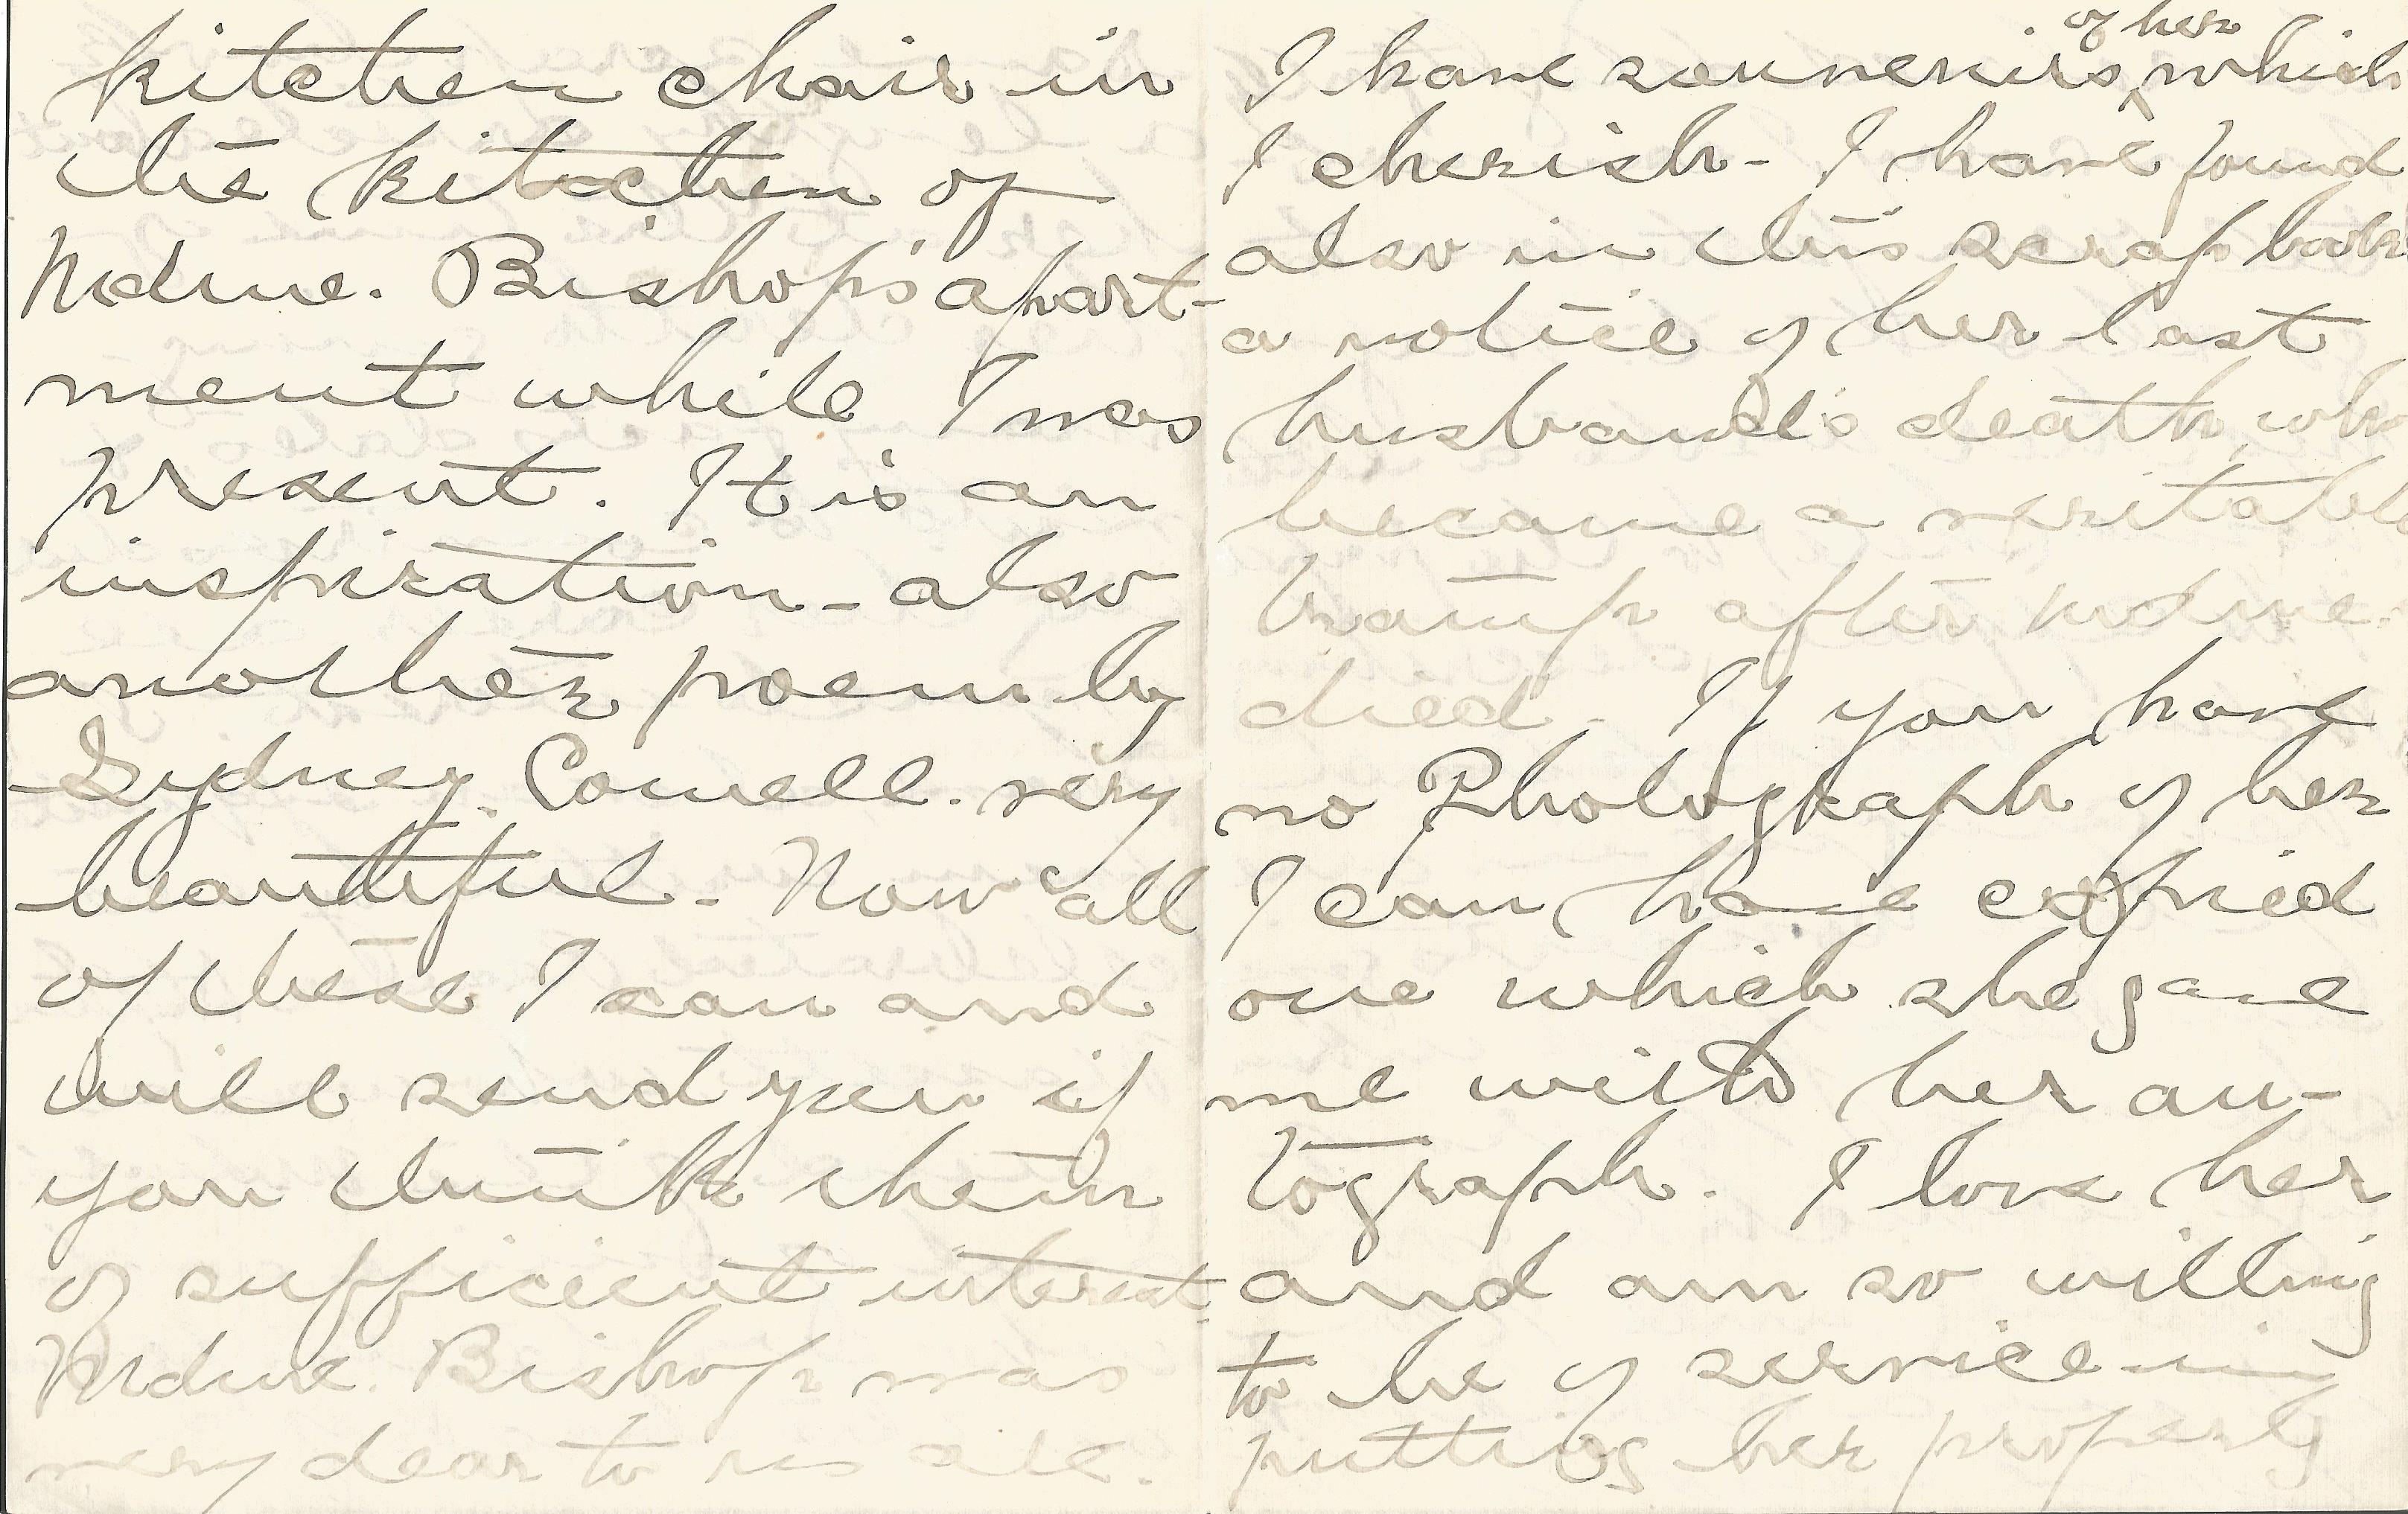 kitchen chair in
the kitchen of
Mdme. Bishop's apart-
ment while I was
present. It is an
inspiration - also
another poem by
Sydney Cowell. very
beautiful - Now all
of these I can and
will send you if
you think them
of sufficient interest.
Mdme. Bishop was
very dear to us all.
I have souvenirs of her which
I cherish - I have found
also in this scrap book
a notice of her last
husband's death, who
became a veritable
tramp after Mdme.
died. If you have
no Photograph of her
I can have copied
one which she gave
me with her au-
tograph. I love her
and am so willing
to be of service in
putting her properly